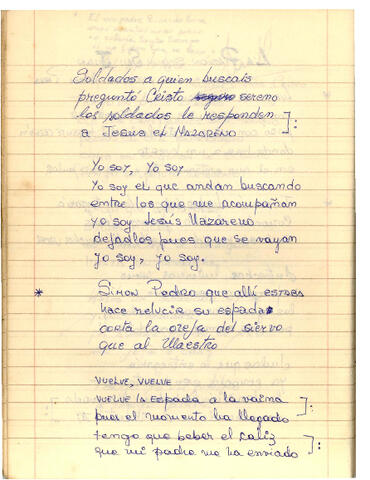 Soldados a quien buscais
preguntó Cristo sereno
los soldados le responden
a Jesus el Nazareno
Yo soy, Yo soy
Yo soy el que andan buscando
entre los que me acompañan
yo soy Jesús Nazareno
dejadlos pues que se vayan
yo soy, yo soy.
* Simon Pedro que allí estaba
hace relucir su espada
corta la oreja del siervo
que al Maestro
VUELVE, VUELVE
VUELVE la ESPADA a la vaina
pues el momento ha llegado
tengo que beber el caliz
que mi padre me ha enviado